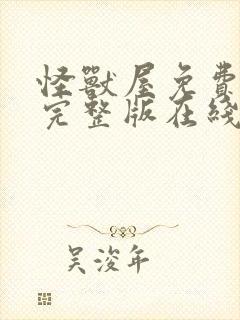 怪獸屋免費
完整版在綫
吴浚年